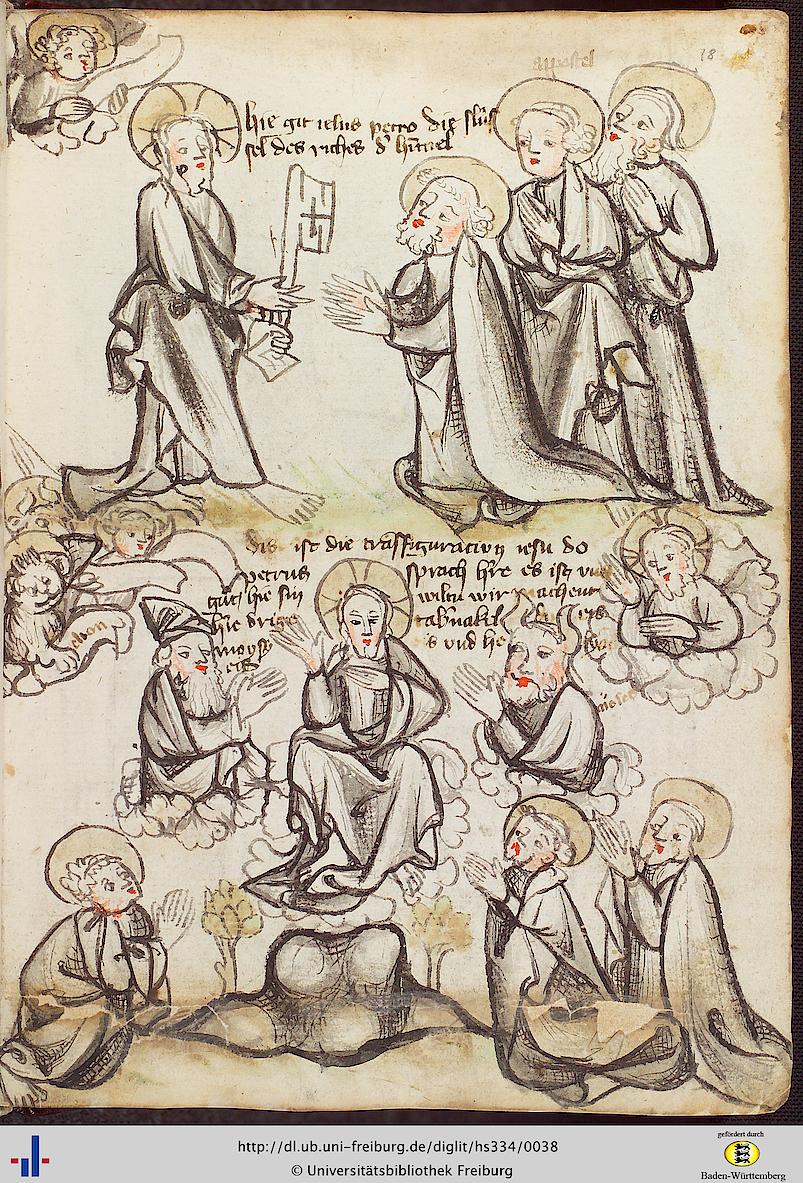 appostel
18
hie git iesus petro die slüs
sel des riches d' himel
dis ist die tra͠sfiguraciun iesu do
petrus sprach h're es ist
gut hie sin wiltu wir machent
hie drige tab'nakil
moyse
eis
aaron
moises
http://dl.ub.uni-freiburg.de/diglit/hs334/0038
© Universitätsbibliothek Freiburg
gefördert durch
Baden-Württemberg